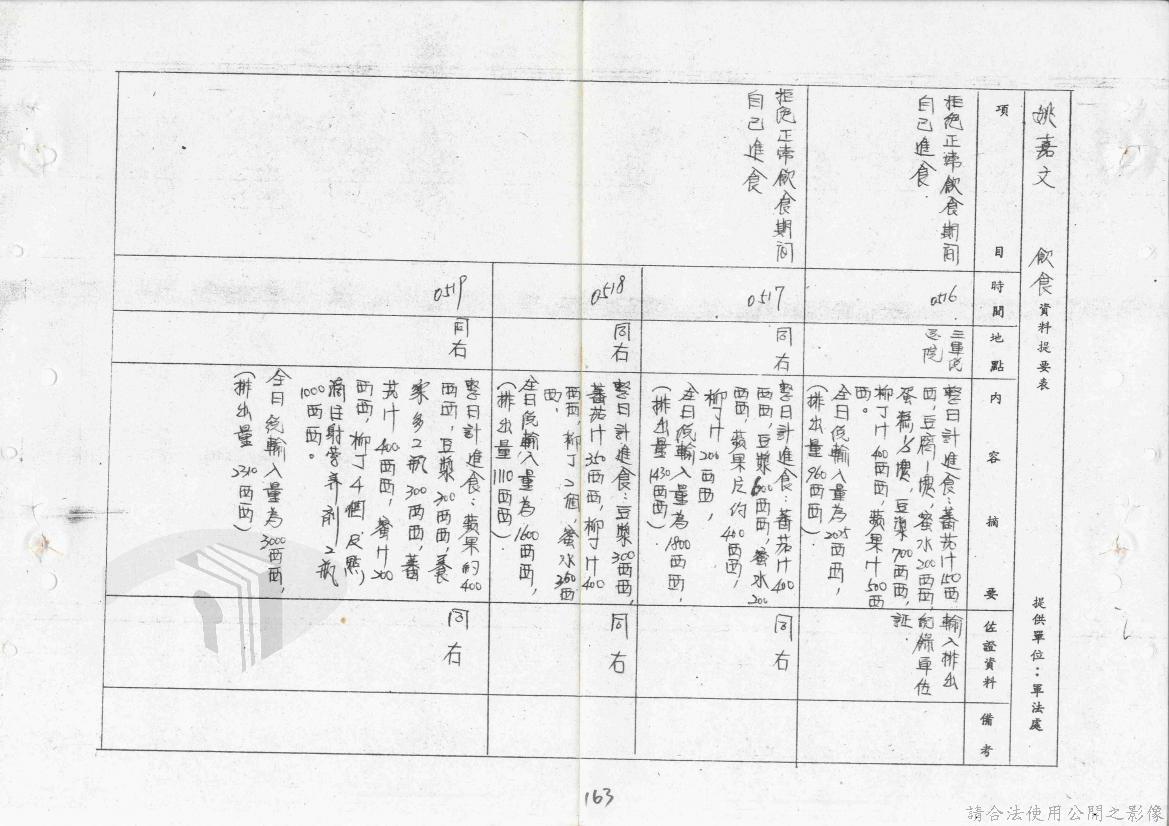 姚嘉文 飲食資料提要表 提供單位：軍法處
項目
時間
地點
內容摘要
佐證資料
備考
拒絕正常飲食期间
自己進食
0516
三軍總
医院
整日計進食：蕃茄汁150
西西，豆腐一塊，蜜水200西西，
蛋糕 塊，豆漿700西西，
柳丁汁400西西，蘋果汁500西
西。
全日總輸入量為2025西西，
（排出量960西西）
輸入排出
紀錄單佐
証．
拒絕正常飲食期间
自己進食
0517
同右
整日計進食：蕃茄汁400
西西，豆漿600西西，蜜水200
西西，蘋果 約400西西，
柳丁汁200西西，
全日總輸入量為1800西西，
（排出量1430西西）．
同右
0518
同右
整日計進食：豆漿300西西，
蕃茄汁350西西，柳丁汁400
西西，柳丁2個，蜜水350西
西．
全日總輸入量為1600西西，
（排出量1110西西）
同右
0519
同右
整日計進食：蘋果約400
西西，豆漿200西西，養
樂多2瓶300西西，蕃
茄汁400西西，蜜汁200
西西，柳丁4個及點
滴注射營養劑2瓶
1000西西。
全日總輸入量為3000西西，
（排出量2310西西）
同右
163
請合法使用公開之影像